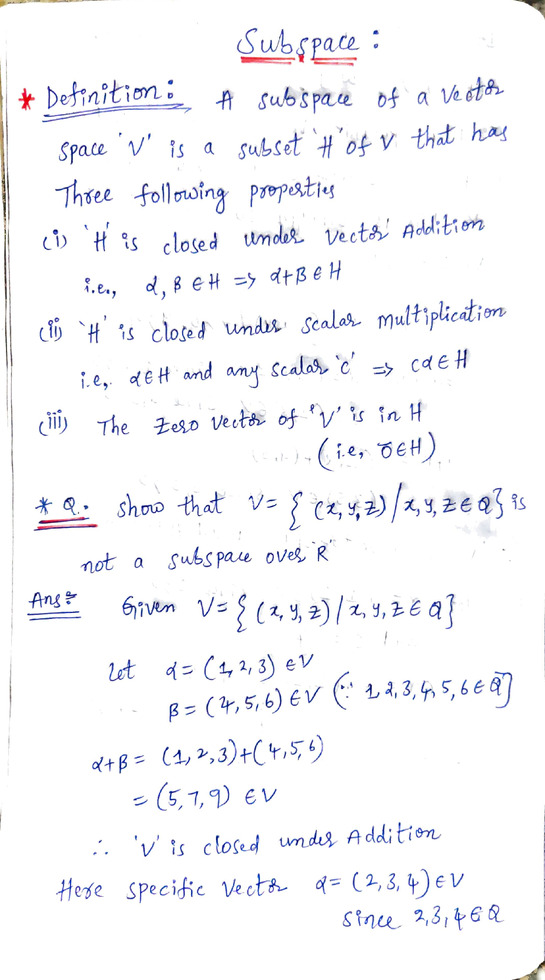 Subspace :
* Definition : A subspace of a vector
space 'V' is a subset 'H' of V that has
Three following properties
(i) 'H' is closed under vector Addition
i.e., α, β ∈ H => α+β ∈ H
(ii) 'H' is closed under scalar multiplication
i.e, α ∈ H and any scalar 'c' => cα ∈ H
(iii) The zero vector of 'V' is in H
(i.e, ō ∈ H)
* Q. show that V = { (x, y, z) / x, y, z ∈ Q } is
not a subspace over R
Ans : Given V = { (x, y, z) / x, y, z ∈ Q }
Let α = (1, 2, 3) ∈ V
β = (4, 5, 6) ∈ V (∵ 1, 2, 3, 4, 5, 6 ∈ Q]
α+β = (1, 2, 3) + (4, 5, 6)
= (5, 7, 9) ∈ V
∴ 'V' is closed under Addition
Here specific vector α = (2, 3, 4) ∈ V
since 2, 3, 4 ∈ Q